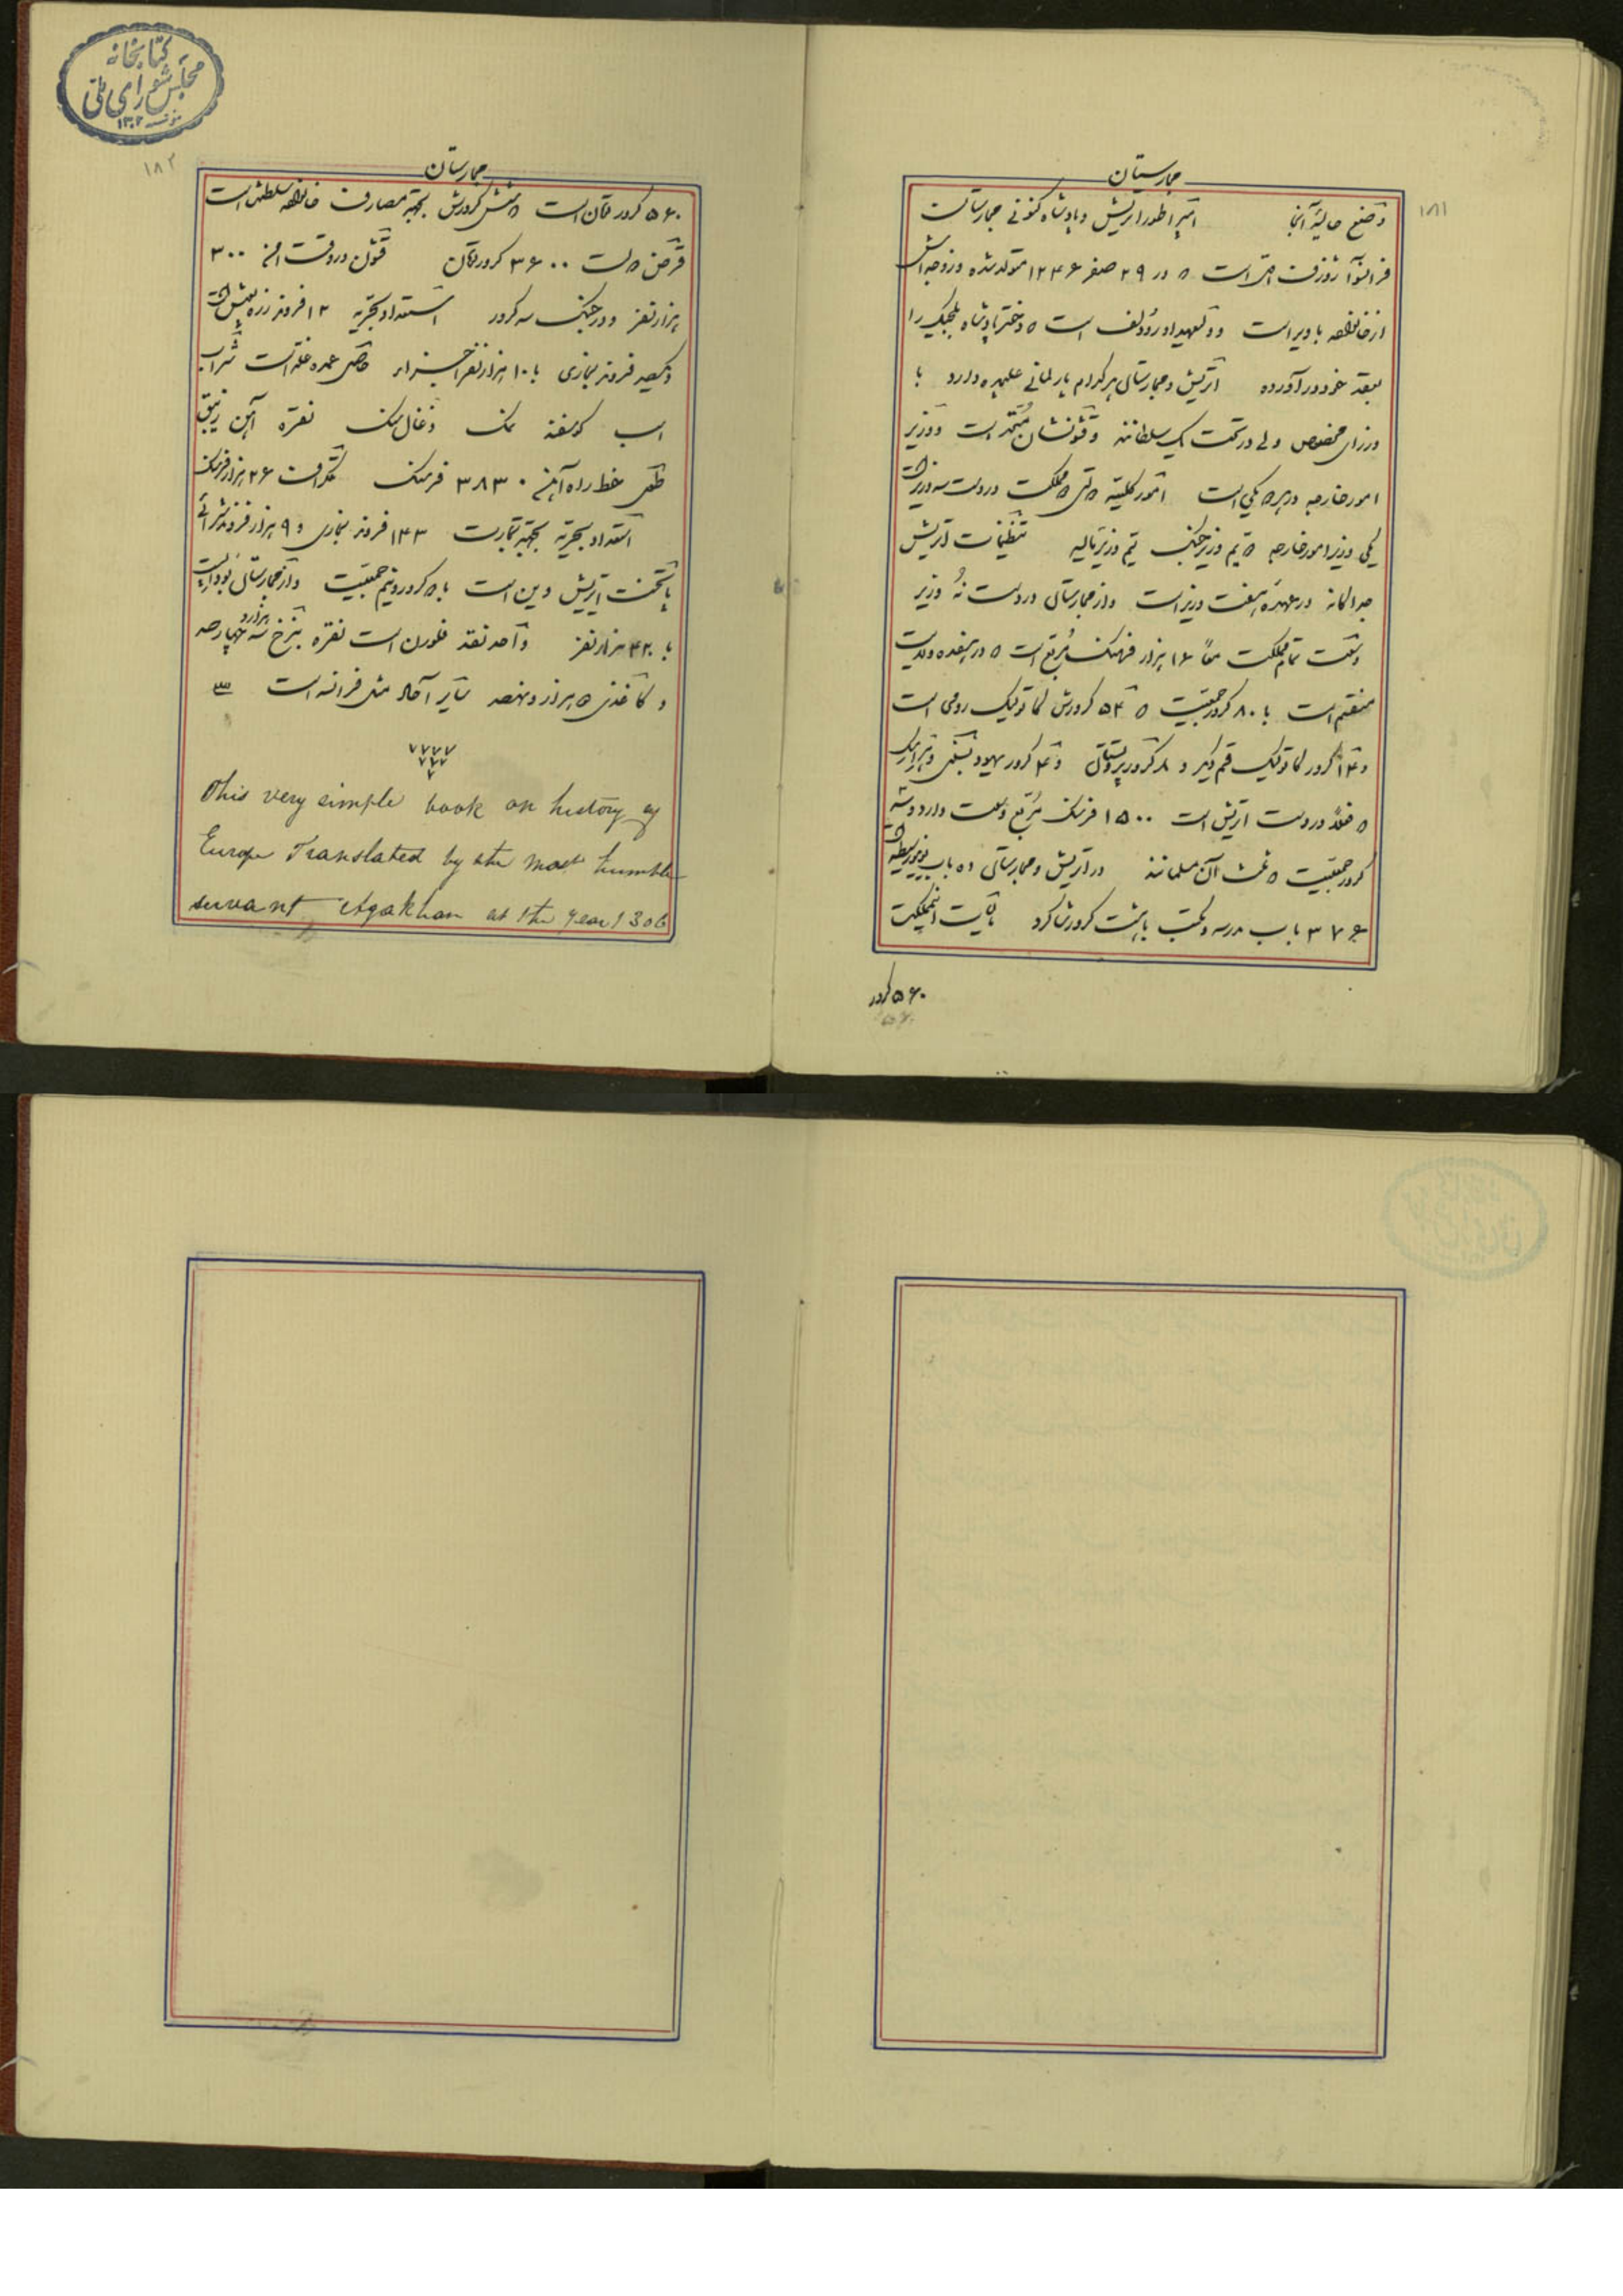 مجارستان
۱۸۱
وضع حالیه آنجا امپراطور اتریش و پادشاه کنونی مجارستان
فرانسوآ ژوزف است که در ۲۹ صفر ۱۲۴۶ متولد شده و زوجه‌اش
از خانواده باویر است و ولیعهد او رودلف است که دختر پادشاه بلجیک را
بعقد خود در آورده اتریش و مجارستان هر کدام پارلمانی علیحده دارد با
وزرای مخصوص ولی در تحت یک سلطانند و قشونشان متحد است و وزیر
امور خارجه هر دو یکی است امور کلیه این مملکت در دست سه وزیر است
یکی وزیر امور خارجه دویم وزیر جنگ سیم وزیر مالیه تنظیمات اتریش
جداگانه در عهده هفت وزیر است و از مجارستان در دست نُه وزیر
وسعت تمام مملکت معاً ۱۶ هزار فرسنگ مربع است که در هفده ولایت
منقسم است با ۸۰ کرور جمعیت که ۵۴ کرورش کاتولیک رومی است
و ۱۴ کرور کاتولیک قسم دیگر و ۸ کرور پروتستان و ۴ کرور یهود و
که فعلاً در دست اتریش است ۱۵۰۰ فرسنگ مربع وسعت دارد و سه
کرور جمعیت که ثلث آن مسلمانند در اتریش و مجارستان ۵۱ باب
۳۷۶ باب مدرسه و مکتب با هشت کرور شاگرد مالیات این مملکت
۵۶۰ کرور
کتابخانه
مجلس شورای ملی
۱۳۰۲
۱۸۲
مجارستان
۵۶۰ کرور تومان است که شش کرورش بجهة مصارف خانواده سلطنت است
قرض دولت ۳۶۰۰ کرور تومان قشون در وقت امن ۳۰۰
هزار نفر و در جنگ سه کرور استعداد بحریه ۱۲ فروند زره پوش است
و یکصد فروند بخاری با ۱۰ هزار نفر حاصل عمده غله است شراب
اسب گوسفند نمک ذغال سنگ نقره آهن زیبق
طول خط راه آهن ۳۸۳۰ فرسنگ تلگراف ۲۶ هزار فرسنگ
استعداد بحریه بجهة تجارت ۱۴۳ فروند بخاری و ۹ هزار فروند شراعی
پایتخت اتریش وین است با دو کرور و نیم جمعیت و از مجارستان بوداپست
با ۴۲۰ هزار نفر واحد نقد فلورن است نقره بنرخ سه هزار و چهارصد
و کاغذی دو هزار و نهصد سایر آحاد مثل فرانسه است
This very simple book on history of
Europe Translated by the most humble
servant Agakhan at the year 1306